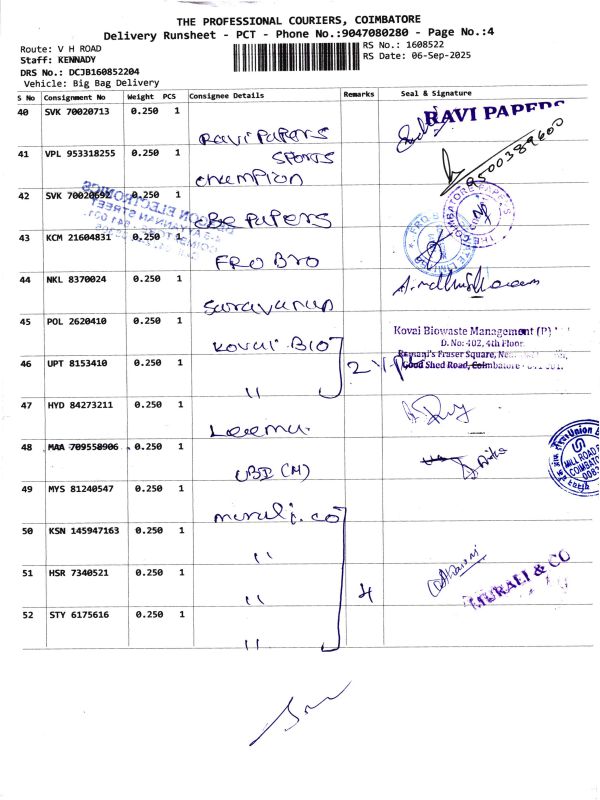 THE PROFESSIONAL COURIERS, COIMBATORE
Delivery Runsheet - PCT - Phone No.:9047080280 - Page No.:4
Route: V H ROAD
RS No.: 1608522
Staff: KENNADY
RS Date: 06-Sep-2025
DRS No.: DCJB160852204
Vehicle: Big Bag Delivery
S No Consignment No Weight PCS Consignee Details Remarks Seal & Signature
40 SVK 70020713 0.250 1
Ravi Papers
RAVI PAPERS
41 VPL 953318255 0.250 1
SPORTS
Champion
9500389600
42 SVK 70020692 0.250 1
CBE Papers
COIMBATORE PAPERS
43 KCM 21604831 0.250 1
FRO BRO
44 NKL 8370024 0.250 1
45 POL 2620410 0.250 1
Kovai BIO
Kovai Biowaste Management (P)
D. No: 402, 4th Floor
46 UPT 8153410 0.250 1
"
2
Fraser Square,
Good Shed Road, Coimbatore
47 HYD 84273211 0.250 1
48 MAA 709558906 0.250 1
UBI (M)
MILL ROAD
COIMBATORE
49 MYS 81240547 0.250 1
murali.co
50 KSN 145947163 0.250 1
"
51 HSR 7340521 0.250 1
"
4
MURALI & CO
52 STY 6175616 0.250 1
"